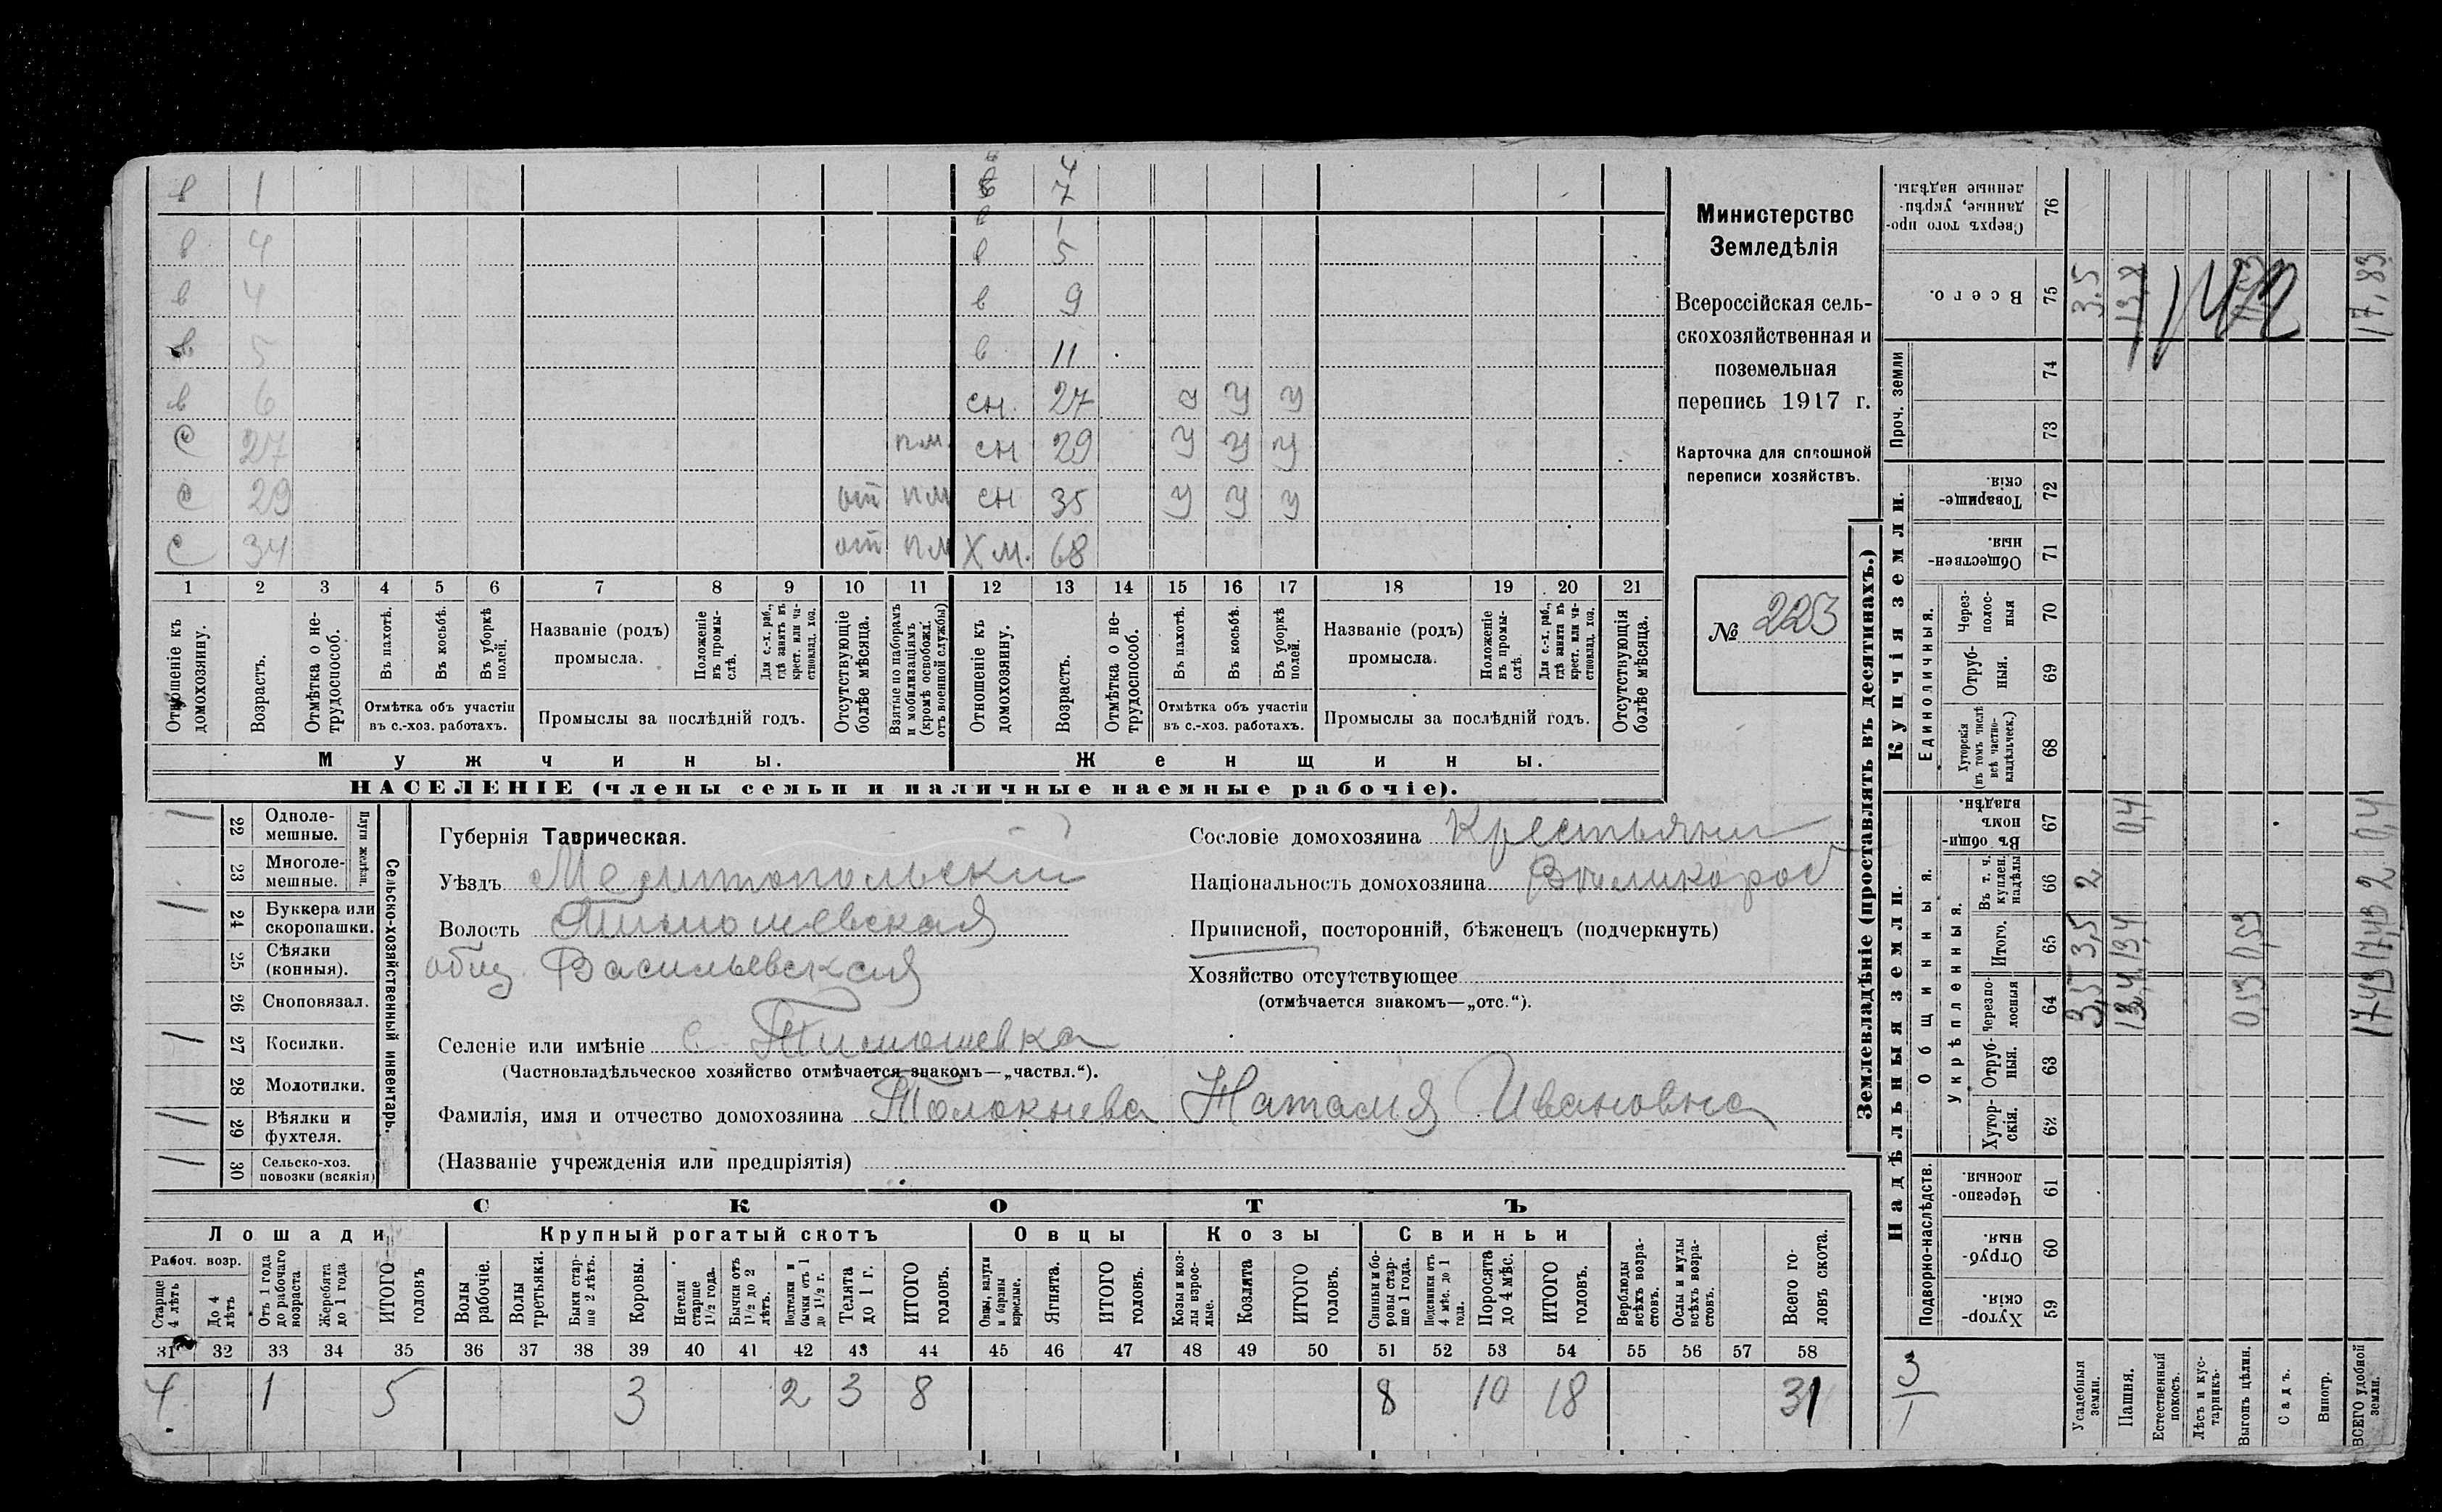 в 1 в 7
в 4 в 5
в 4 в 9
в 5 в 11
в 6 сн. 27 у у у
с 27 пм. сн 29 у у у
с 29 от пм сн 35 у у у
с 34 от пм Х м. 68
1 2 3 4 5 6 7 8 9 10 11 12 13 14 15 16 17 18 19 20 21
Отношеніе къ домохозяину.
Возрастъ.
Отмѣтка о не-трудоспособ.
Въ пахотѣ.
Въ косьбѣ.
Въ уборкѣ полей.
Отмѣтка объ участіи
въ с.-хоз. работахъ.
Названіе (родъ)
промысла.
Положеніе въ промы-слѣ.
Для с.-х. раб., гдѣ занятъ въ крест. или ча-стновлад. хоз.
Промыслы за послѣдній годъ.
Отсутствующіе болѣе мѣсяца.
Взятые по наборамъ и мобилизаціямъ (кромѣ освобожд. отъ военной службы)
Отношеніе къ домохозяину.
Возрастъ.
Отмѣтка о не-трудоспособ.
Въ пахотѣ.
Въ косьбѣ.
Въ уборкѣ полей.
Отмѣтка объ участіи
въ с.-хоз. работахъ.
Названіе (родъ)
промысла.
Положеніе въ промы-слѣ.
Для с.-х. раб., гдѣ занята въ крест. или ча-стновлад. хоз.
Промыслы за послѣдній годъ.
Отсутствующія болѣе мѣсяца.
Мужчины.
Женщины.
НАСЕЛЕНІЕ (члены семьи и наличные наемные рабочіе).
Министерство
Земледѣлія
Всероссійская сель-
скохозяйственная и
поземельная
перепись 1917 г.
Карточка для сплошной
переписи хозяйствъ.
№ 223
/ 22 Одноле-мешные.
23 Многоле-мешные.
Плуги желѣзн.
/ 24 Буккера или скоропашки.
25 Сѣялки (конныя).
26 Сноповязал.
/ 27 Косилки.
28 Молотилки.
/ 29 Вѣялки и фухтеля.
/ 30 Сельско-хоз. повозки (всякія)
Сельско-хозяйственный инвентарь.
Губернія Таврическая.
Уѣздъ Мелитопольскій
Волость Тимошевская
общ. Васильевская
Селеніе или имѣніе с. Тимошевка
(Частновладѣльческое хозяйство отмѣчается знакомъ—„частвл.“).
Фамилія, имя и отчество домохозяина Толокнева Наталия Ивановна
(Названіе учрежденія или предпріятія)
Сословіе домохозяина Крестьянин
Національность домохозяина Великорос
Приписной, посторонній, бѣженецъ (подчеркнуть)
Хозяйство отсутствующее
(отмѣчается знакомъ—„отс.“).
СКОТЪ
Лошади
Крупный рогатый скотъ
Овцы
Козы
Свиньи
Рабоч. возр.
Старше 4 лѣтъ
До 4 лѣтъ
Отъ 1 года до рабочаго возраста
Жеребята до 1 года
ИТОГО головъ
Волы рабочіе.
Волы третьяки.
Быки стар-ше 2 лѣтъ.
Коровы.
Нетели старше 1½ года.
Бычки отъ 1½ до 2 лѣтъ.
Подтелки и бычки отъ 1 до 1½ г.
Телята до 1 г.
ИТОГО головъ.
Овцы, валухи и бараны взрослые.
Ягнята.
ИТОГО головъ.
Козы и коз-лы взрос-лые.
Козлята
ИТОГО головъ.
Свиньи и бо-ровы стар-ше 1 года.
Подсвинки отъ 4 мѣс. до 1 года.
Поросята до 4 мѣс.
ИТОГО головъ.
Верблюды всѣхъ возра-стовъ.
Ослы и мулы всѣхъ возра-стовъ.
Всего го-ловъ скота.
31 32 33 34 35 36 37 38 39 40 41 42 43 44 45 46 47 48 49 50 51 52 53 54 55 56 57 58
4 1 5 3 2 3 8 8 10 18 31
Землевладѣніе (проставлять въ десятинахъ.)
Надѣльныя земли.
Купчія земли.
Проч. земли
Подворно-наслѣдств.
Общинныя.
Укрѣпленныя.
Единоличныя.
Сверхъ того про-данные, укрѣп-ленные надѣлы. 76
Всего. 75 3,5 13,8 17,83
74
73
Товарище-скія. 72
Обществен-ныя. 71
Через-полос-ныя 70
Отруб-ныя. 69
Хуторскія (въ томъ числѣ всѣ частно-владѣльческ.) 68
Въ общин-номъ владѣн. 67 0,4 0,4
Въ т. ч. куплен. надѣлы 66 2 2
Итого. 65 3,5 13,4 0,53 17,43
Черезпо-лосныя 64 3,5 13,4 0,53 17,43
Отруб-ныя. 63
Хутор-скія. 62
Черезпо-лосныя 61
Отруб-ныя. 60
Хутор-скія. 59
Усадебныя земли.
Пашня.
Естественный покосъ.
Лѣсъ и кус-тарникъ.
Выгонъ цѣлин.
Садъ.
Виногр.
ВСЕГО удобной земли.